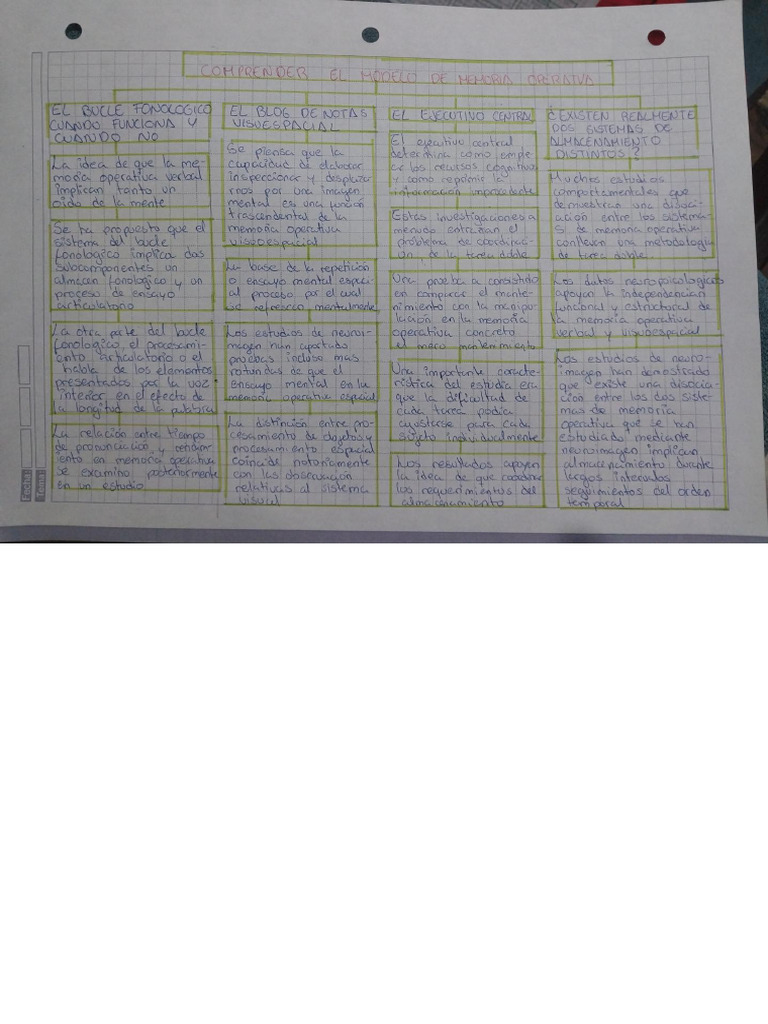 COMPRENDER EL MODELO DE MEMORIA OPERATIVA
EL BUCLE FONOLOGICO
CUANDO FUNCIONA Y
CUANDO NO
La idea de que la me-
moria operativa verbal
implican tanto un
oido de la mente
Se ha propuesto que el
sistema del bucle
fonologico implica dos
subcomponentes un
almacan fonologico y un
proceso de ensayo
articulatorio
La otra parte del bucle
fonologico, el procesami-
ento articulatorio o el
habla de los elementos
presentados por la voz
interior, en el efecto de
la longitud de la palabra
La relación entre tiempo
de pronunciación y
ento en memoria operativa
se examino posteriormente
en un estudio
EL BLOG DE NOTAS
VISUESPACIAL
Se piensa que la
capacidad de elaborar
inspeccionar y desplaza
rnos por una imagen
mental es una función
trascendental de la
memoria operativa
viseoespacial
La base de la repetición
o ensayo mental especi-
al proceso por el cual
se refresca mentalmente
Los estudios de neuroi-
magen han aportado
pruebas incluso mas
rotundas de que el
ensayo mental en la
memoria operativa espacial
La distinción entre pro-
cesamiento de objetos y
procesamiento espacial
coincide notoriamente
con las observación
relativas al sistema
visual
EL EJECUTIVO CENTRAL
El ejecutivo central
determina como emple
ar los recursos cognitivo
y como reprimir la
información improcedente
Estas investigaciones a
menudo entrañan el
problema de coordinac-
ion de la tarea doble
Una prueba a consistido
en comparar el mante-
nimiento con la manipu-
lación en la memoria
operativa concreto
el mero mantenimiento
Una importante caracte-
ristica del estudia era
que la dificultad de
cada tarea podia
ajustarse para cada
sujeto individualmente
Los resultados apoyan
la idea de que coordinar
los requerimientos del
almacenamiento
¿EXISTEN REALMENTE
DOS SISTEMAS DE
ALMACENAMIENTO
DISTINTOS?
Muchos estudios
comportamentales que
demuestran una disoci-
ación entre los sistema-
s de memoria operativa
conllevan una metodologia
de tarea doble.
Los datos neuropsicologicos
apoyan la independencian
funcional y estructural de
la memoria operativa
verbal y visuoespacial
Los estudios de neuro-
imagen han demostrado
que existe una disocia-
ción entre los dos siste-
mas de memoria
operativa que se han
estudiado mediante
neuroimagen implican
almacenamiento durante
largos intervalos
seguimientos del orden
temporal
Fecha:
Tema: